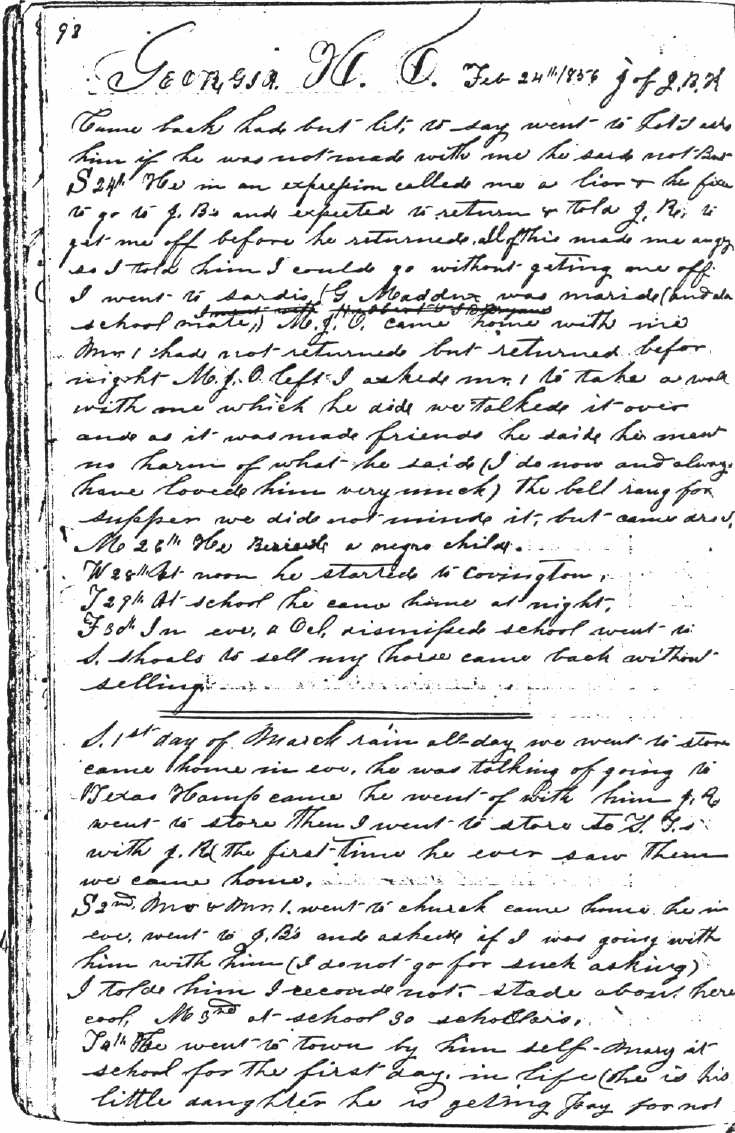 98
GEORGIA. H. C. Feb 24th/1856 J of J. B. H
Came back had but lit, to say went to Lot I aske
him if he was not made with me he saide not But
S 24th He in an expression callede me a liar & he fixe
to go to J. B's ande expected to return & told J. R. to
get me off before he returnede. All of this made me angry
so I told him I coulde go without geting one off
I went to sardis (G Maddux was maride (and a
school mate,) M. J. O. came home with me
Mr. 1 hade not returnede but returned befor
night M. J. O. left I askede mr. 1 to take a walk
with me which he dide we talkede it over
ande as it was made friends he saide he ment
no harm of what he saide (I do now and always
have lovede him very much) the bell rang for
supper we dide not minde it, but came
M 26th He Beriede a negro childe.
W 28th At noon he startede to Covington,
T 29th At school he came home at night,
F 30th In eve, a Ocl, dismissede school went to
S. shoals to sell my horse came back without
selling.
S. 1st day of March rain all-day we went to store
came home in eve. he was talking of going to
Texas Hamp came he went of with him J. R
went to store then I went to store to T. G.s
with J. R (the first-time he ever saw them
we came home.
S 2nd. Mo & Mr. 1. went to church came home he in
eve. went to J. B's ande askede if I was going with
him with him (I do not go for such asking)
I tolde him I reconde not- stade about here
cool, M 3rd at school 30 schollars.
T 4th He went to town by him self- Mary at
school for the first day. in life (she is his
little daughter he is geting pay for not